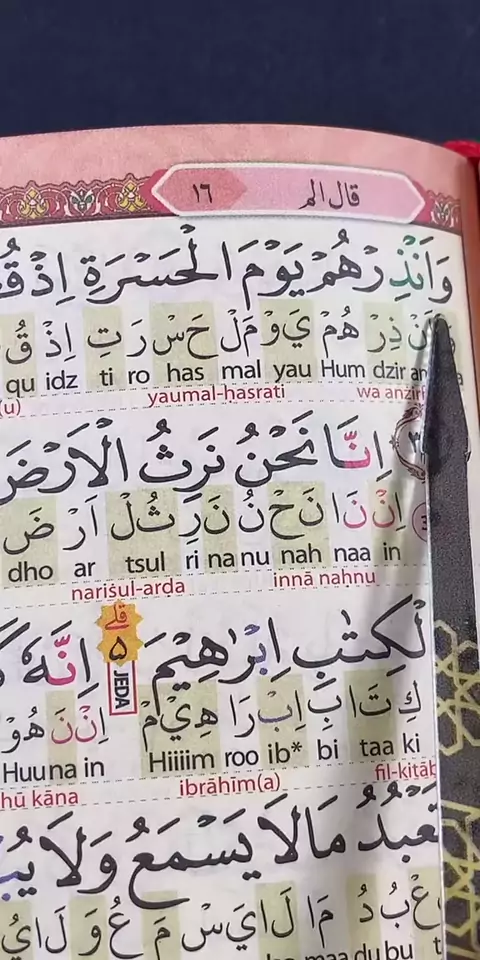 قال الم ١٦
وَاَنْذِرْهُمْ يَوْمَ الْحَسْرَةِ اِذْ
ذِرْ هُمْ يَوْمَلْ حَسْرَتِ اِذْ قُ
qu idz ti ro has mal yau Hum dzir
(u) yaumal-ḥasrati wa anżir
اِنَّا نَحْنُ نَرِثُ الْاَرْضَ
اِنْ نَا نَحْ نُ نَ رِ ثُلْ اَرْ ضَ
dho ar tsul ri na nu nah naa in
nariṡul-arḍa innā naḥnu
لْكِتٰبِ اِبْرٰهِيْمَ ۗ اِنَّهٗ
كِ تَا بِ اِبْ رَا هِيْمْ اِنْ نَ هُوْ
Huu na in Hiiiim roo ib* bi taa ki
قلے ٥ JEDA
hū kāna ibrāhīm(a) fil-kitāb
تَعْبُدُ مَا لَا يَسْمَعُ وَلَا
عْ بُ دُ مَا لَا يَسْ مَ عُ وَ لَا يُ
maa du bu t